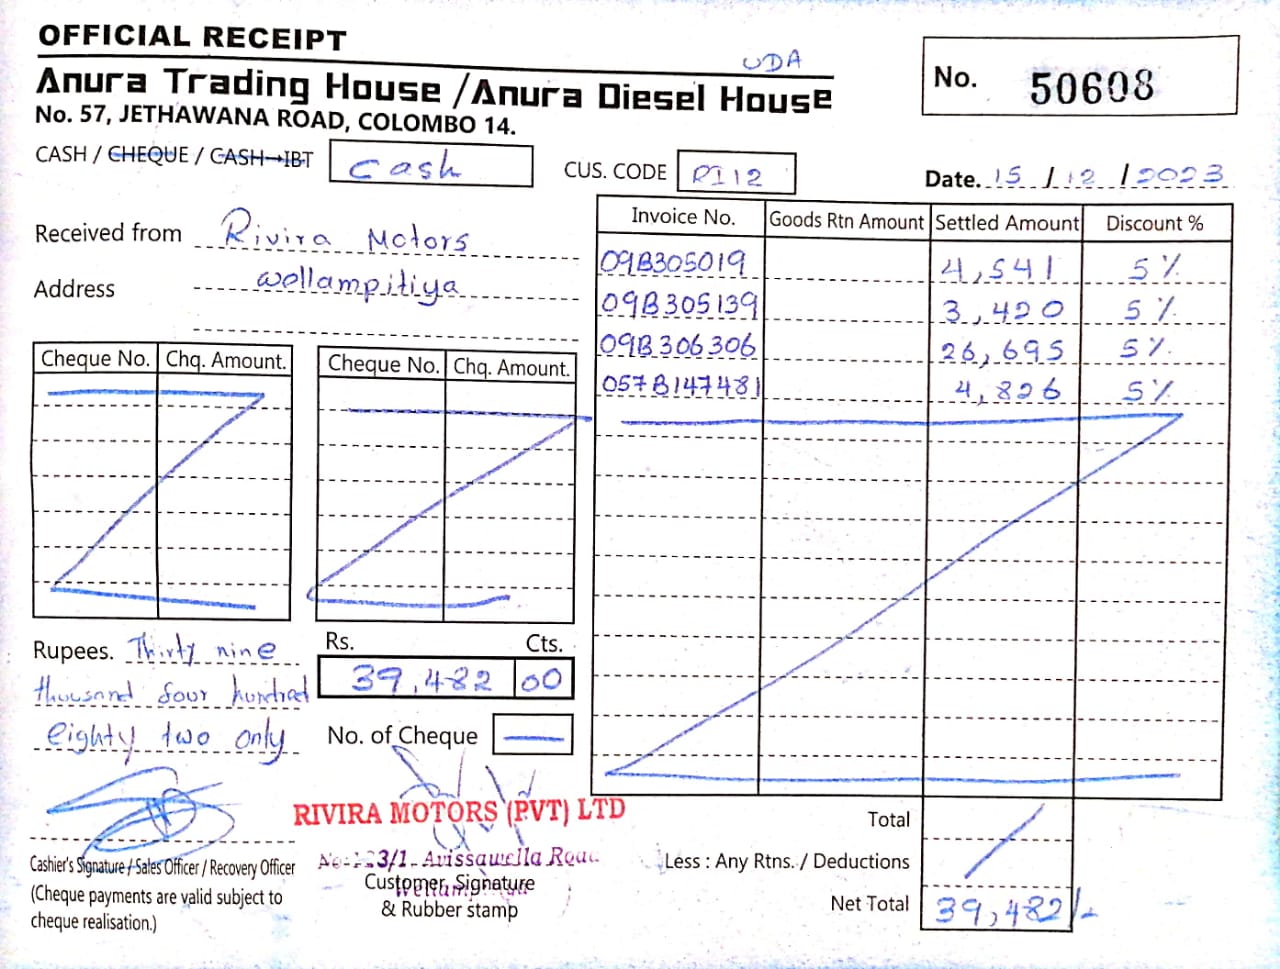 OFFICIAL RECEIPT
UDA
Anura Trading House / Anura Diesel House
No. 57, JETHAWANA ROAD, COLOMBO 14.
No. 50608
CASH / CHEQUE / CASH→IBT cash
CUS. CODE RI12
Date. 15 / 12 / 2023
Received from Rivira Motors
Address wellampitiya
Invoice No. Goods Rtn Amount Settled Amount Discount %
09B305019 4,541 5%
09B305139 3,420 5%
09B306306 26,695 5%
057B147481 4,826 5%
Cheque No. Chq. Amount. Cheque No. Chq. Amount.
Rupees. Thirty nine
thousand four hundred
eighty two only
Rs. Cts.
39,482 00
No. of Cheque —
RIVIRA MOTORS (PVT) LTD
3/1 Avissawella Road
Cashier's Signature / Sales Officer / Recovery Officer
(Cheque payments are valid subject to
cheque realisation.)
Customer Signature
& Rubber stamp
Total
Less : Any Rtns. / Deductions
Net Total 39,482/-